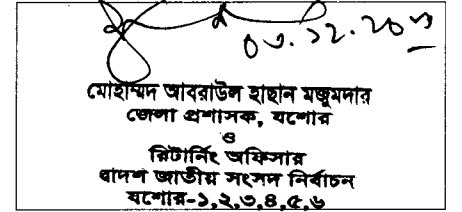 ০৩.১২.২০২৩
মোহাম্মদ আবরাউল হাছান মজুমদার
জেলা প্রশাসক, যশোর
ও
রিটার্নিং অফিসার
দ্বাদশ জাতীয় সংসদ নির্বাচন
যশোর-১,২,৩,৪,৫,৬